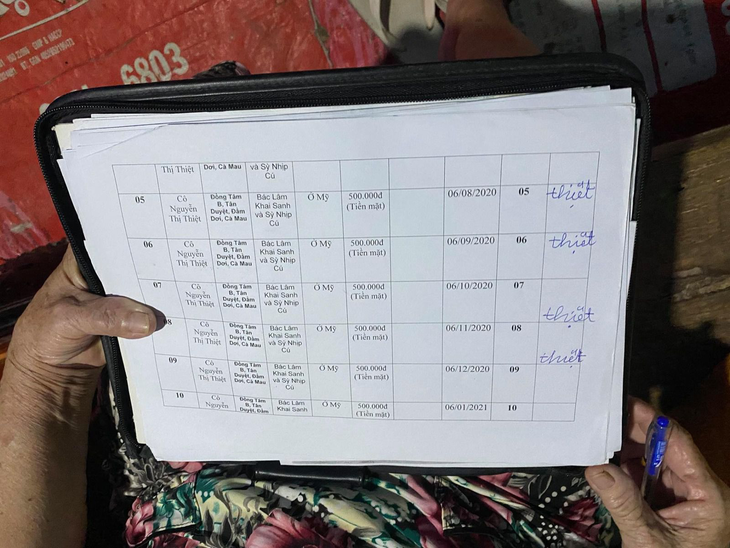 6803
Thị Thiệt
Dơi, Cà Mau
và Sỹ Nhịp
Cú
05
Cô
Nguyễn
Thị Thiệt
Đồng Tâm
B, Tân
Duyệt, Đầm
Dơi, Cà Mau
Bác Lâm
Khai Sanh
và Sỹ Nhịp
Cú
Ở Mỹ
500.000đ
(Tiền mặt)
06/08/2020
05
thiệt
06
Cô
Nguyễn
Thị Thiệt
Đồng Tâm
B, Tân
Duyệt, Đầm
Dơi, Cà Mau
Bác Lâm
Khai Sanh
và Sỹ Nhịp
Cú
Ở Mỹ
500.000đ
(Tiền mặt)
06/09/2020
06
thiệt
07
Cô
Nguyễn
Thị Thiệt
Đồng Tâm
B, Tân
Duyệt, Đầm
Dơi, Cà Mau
Bác Lâm
Khai Sanh
và Sỹ Nhịp
Cú
Ở Mỹ
500.000đ
(Tiền mặt)
06/10/2020
07
thiệt
08
Cô
Nguyễn
Thị Thiệt
Đồng Tâm
B, Tân
Duyệt, Đầm
Dơi, Cà Mau
Bác Lâm
Khai Sanh
và Sỹ Nhịp
Cú
Ở Mỹ
500.000đ
(Tiền mặt)
06/11/2020
08
thiệt
09
Cô
Nguyễn
Thị Thiệt
Đồng Tâm
B, Tân
Duyệt, Đầm
Dơi, Cà Mau
Bác Lâm
Khai Sanh
và Sỹ Nhịp
Cú
Ở Mỹ
500.000đ
(Tiền mặt)
06/12/2020
09
10
Cô
Nguyễn
Đồng Tâm
B, Tân
Duyệt, Đầm
Bác Lâm
Khai Sanh
Ở Mỹ
500.000đ
(Tiền mặt)
06/01/2021
10